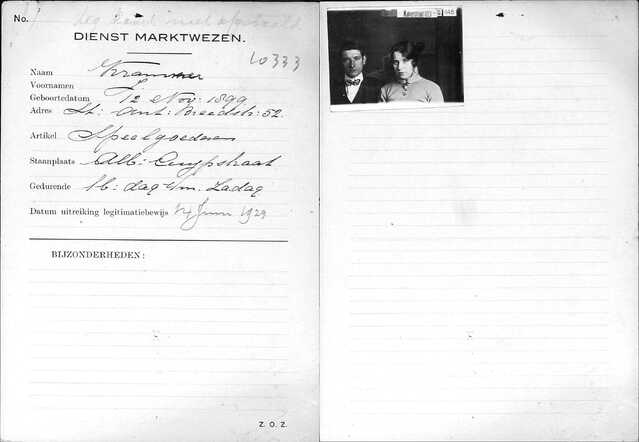 No.
leg. kaart niet
DIENST MARKTWEZEN.
10333
Naam Krammer
Voornamen
Geboortedatum 12 Nov. 1899
Adres St: Ant: Breedstr: 52.
Artikel Speelgoederen
Staanplaats Alb: Cuypstraat
Gedurende M: dag t/m. Zadag
Datum uitreiking legitimatiebewijs 14 Juni 1929
BIJZONDERHEDEN:
Z. O. Z.